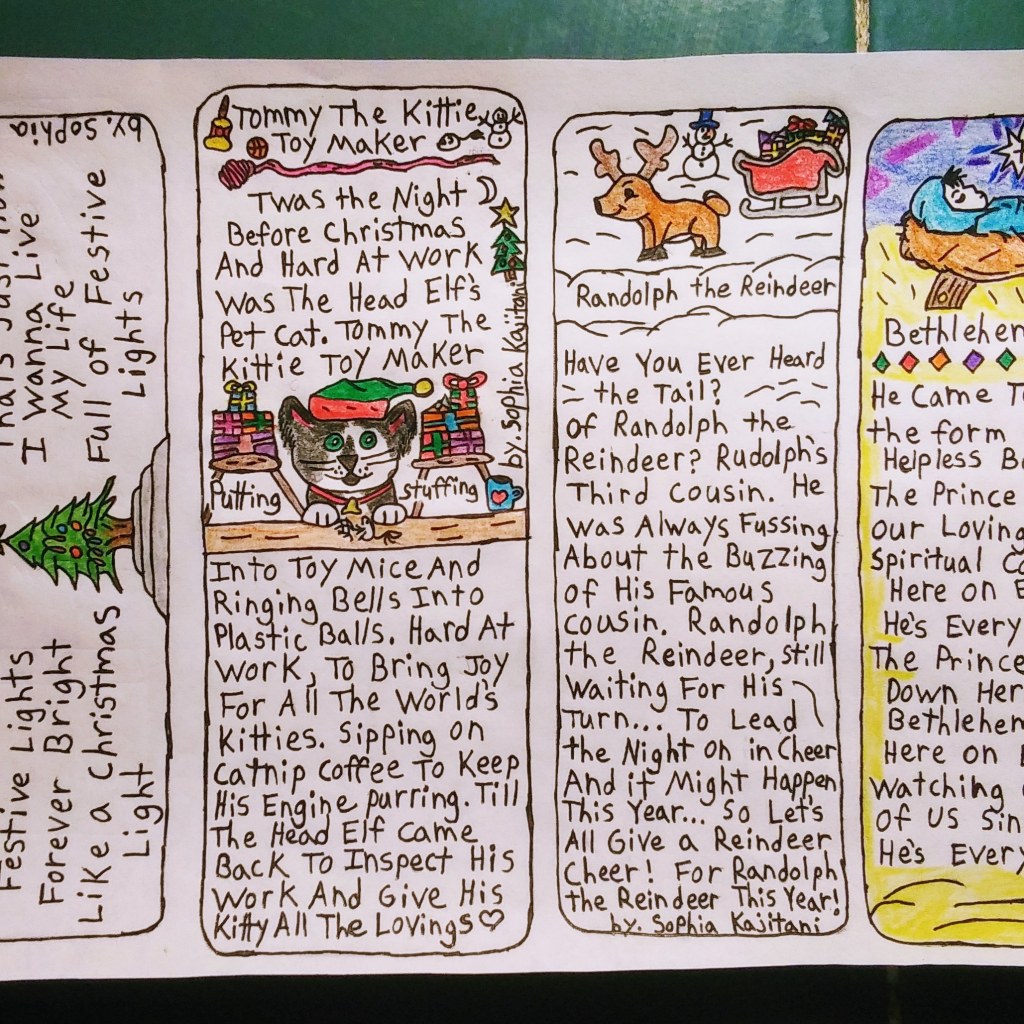 by. Sophia
I Wanna Live
My Life
Full of Festive
Lights
Festive Lights
Forever Bright
Like a Christmas
Light
Tommy The Kittie
Toy Maker
Twas the Night
Before Christmas
And Hard At Work
Was The Head Elf's
Pet Cat. Tommy The
Kittie Toy Maker
by. Sophia Kajitani
Putting stuffing
Into Toy Mice And
Ringing Bells Into
Plastic Balls. Hard At
Work, To Bring Joy
For All The World's
Kitties. Sipping on
Catnip Coffee To Keep
His Engine purring. Till
The Head Elf Came
Back To Inspect His
Work And Give His
Kitty All The Lovings
Randolph the Reindeer
Have You Ever Heard
the Tail?
of Randolph the
Reindeer? Rudolph's
Third Cousin. He
was Always Fussing
About the Buzzing
of His Famous
cousin. Randolph
the Reindeer, still
Waiting For His
Turn... To Lead
the Night on in Cheer
And it Might Happen
This Year... So Let's
All Give a Reindeer
Cheer! For Randolph
the Reindeer This Year!
by. Sophia Kajitani
Bethlehem
He Came T
the form
Helpless B
The Prince
our Loving
Spiritual
Here on E
He's Every
The Prince
Down Her
Bethlehem
Here on
Watching
of Us Sin
He's Every